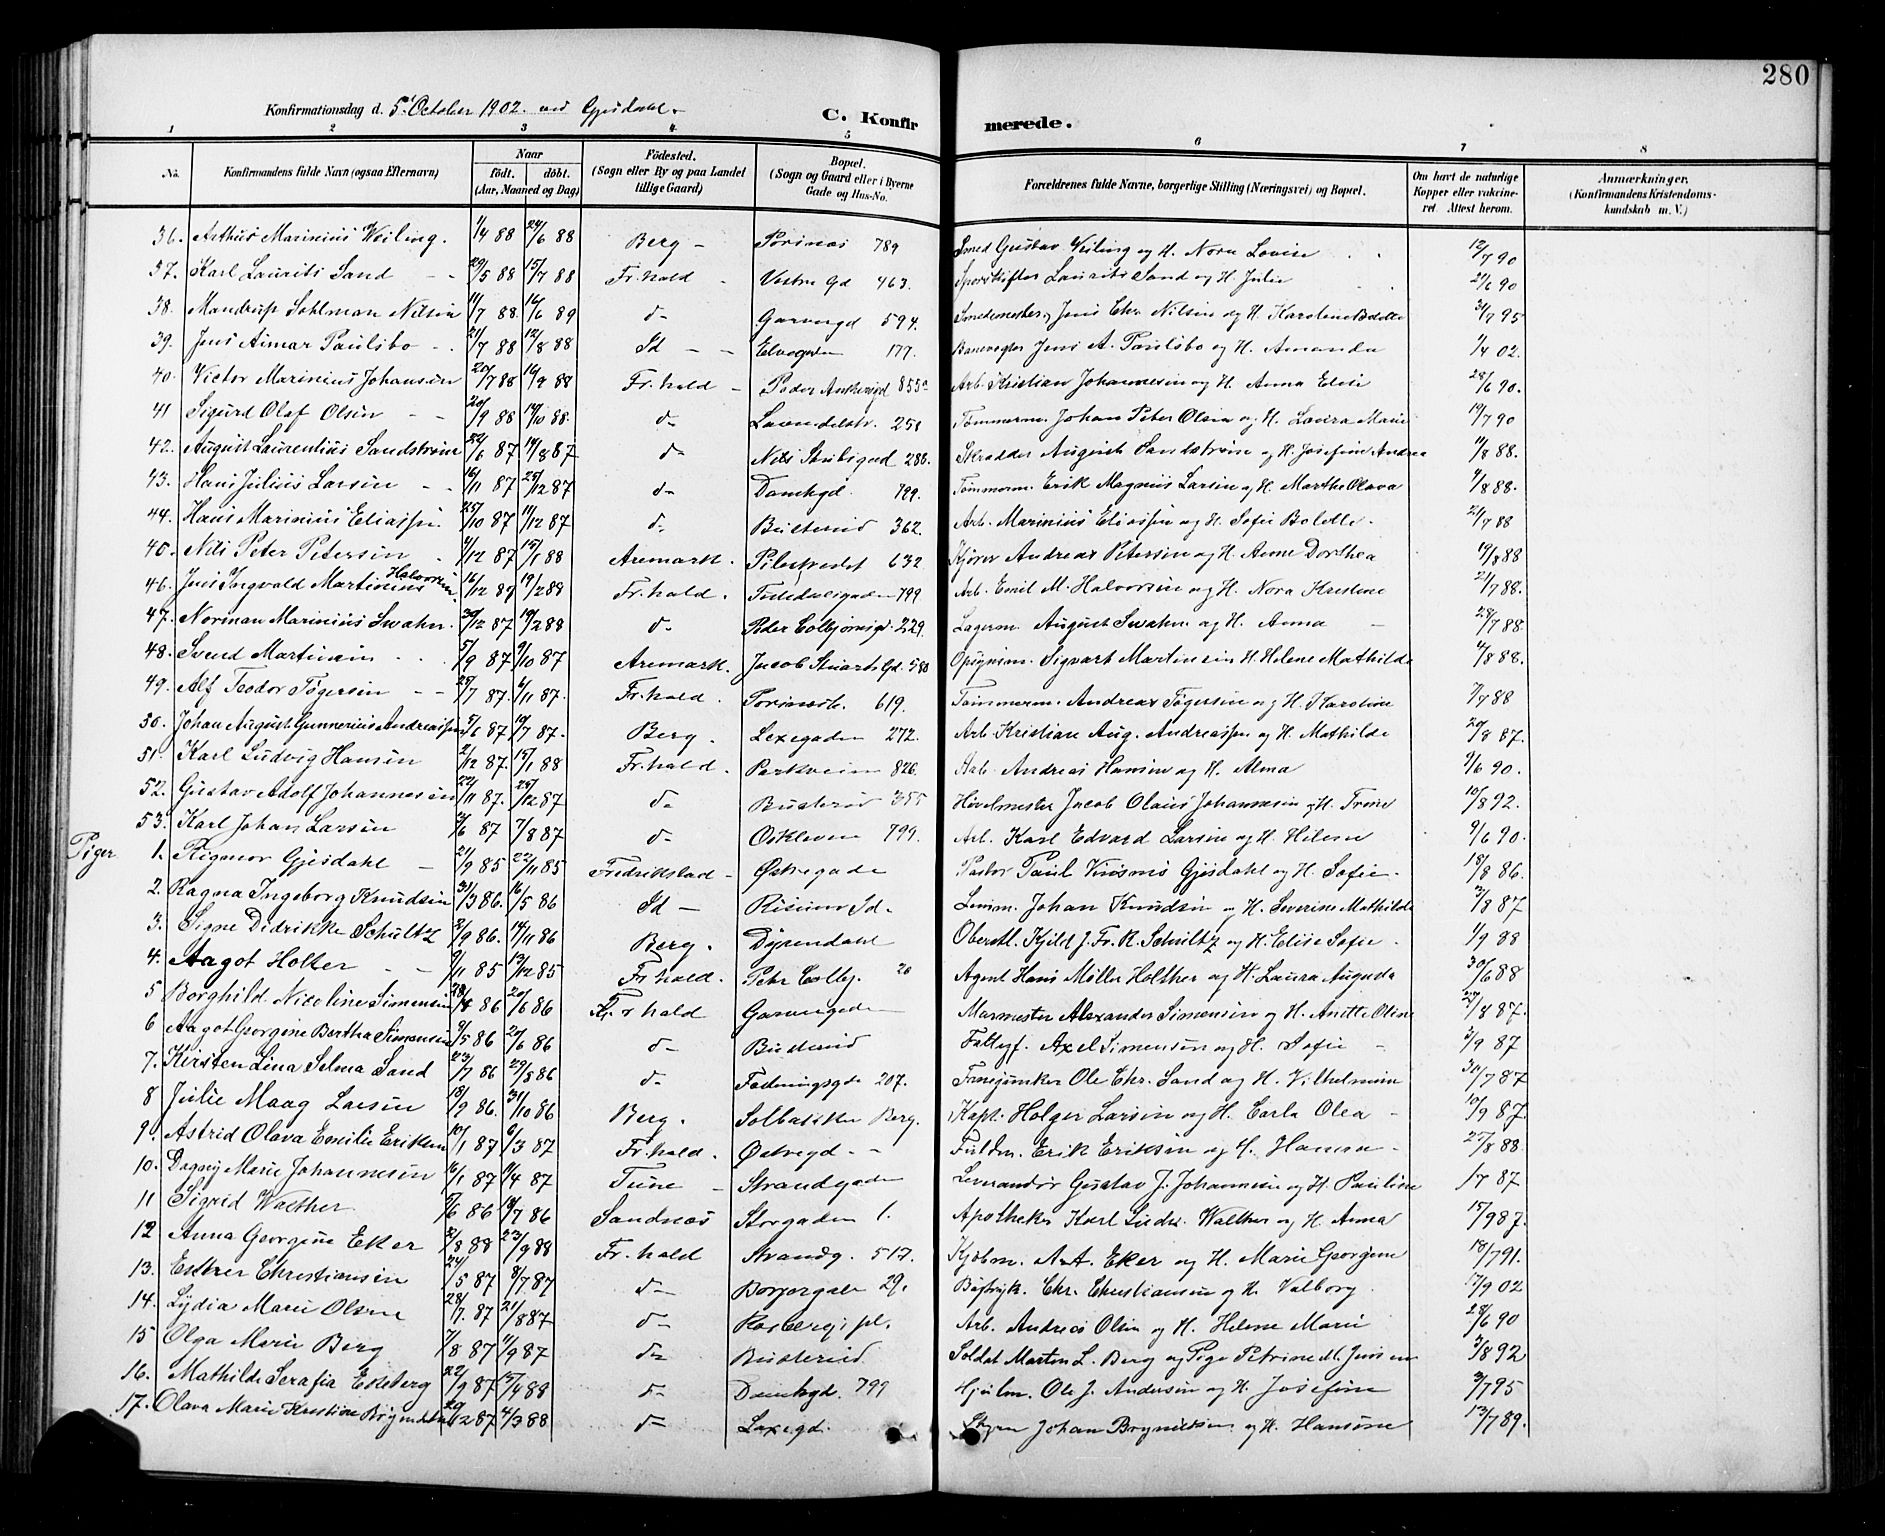 280
Konfirmationsdag d. 5' October 1902. ved Gjesdahl.
C. Konfirmerede.
1 2 3 4 5 6 7 8
No. Konfirmandens fulde Navn (ogsaa Efternavn) Naar födt. döbt. (Aar, Maaned og Dag) Födested. (Sogn eller By og paa Landet tillige Gaard) Bopæl. (Sogn og Gaard eller i Byerne Gade og Hus-No. Forældrenes fulde Navne, borgerlige Stilling (Næringsvei) og Bopæl. Om havt de naturlige Kopper eller vaccineret. Attest herom. Anmærkninger. (Konfirmandens Kristendomskundskab m. V.)
36. Arthur Marinius Weiling. 1/4 88 24/6 88 Berg - 789 Smed Gustav Weiling og H. Nora Lovise 12/7 90
37. Karl Laurits Sand 29/5 88 15/7 88 Fr.hald Vestre Gd 463. Sporskifter Laurits Sand og H. Julie 21/6 90
38. Mandrup Sohlman Nilsen 11/7 88. 16/6 89 d- 594. Smedemester Jens Chr. Nilsen og H. Karoline Bolette 31/7 95
39. Jens Aimar Paulsbo 21/7 88 12/8 88 Id - Elvegaden 177. Banevogter Jens A. Paulsbo og H. Amanda 1/4 02.
40. Victor Marinius Johansen 20/7 88 16/9 88 Fr.hald Peder Ankersgd 855a Arb. Kristian Johannesen og H. Anna Elise 28/6 90.
41 Sigurd Olaf Olsen 20/9 88 14/10 88. d- 251 Tømmerm. Johan Peter Olsen og H. Laura Marie 19/7 90
42. August Laurentius Sandstrøm 22/6 87 14/8 87 d- Nils Stubsgad 286. Skrædder August Sandstrøm og H. Josefine Andrea 11/8 88.
43. Hans Julius Larsen 16/11 87 25/12 87 d- Damhgd. 799. Tømmerm. Erik Magnus Larsen og H. Marthe Olava 4/8 88.
44. Hans Marinius Eliassen 25/10 87 11/12 87 d- Busterud 362. Arb. Marinius Eliassen og H. Sofie Bolette. 21/7 88
Nils Peter Petersen 4/12 87 15/1 88 Aremark. 632 Kjører Andreas Petersen og H. Anne Dorthea 19/8 88
46. Jens Ingvald Martinius Halvorsen. 16/12 87 19/2 88 Fr.hald. Tistedalsgaden 799. Arb. Emil M. Halvorsen og H. Nora Kristine 21/7 88.
47. Norman Marinius Swahn. 30/12 87 19/2 88 d- Peder Colbjørnsgd. 229. Lagerm. August Swahn og H. Anna 28/7 88.
48. Svend Martinsen 5/9 87 9/10 87 Aremark. Jacob Stuarts Gd. 580 Sigvart Martinsen H. Helene Mathilde 4/8 88.
49. Alf Teodor Tøgersen 29/7 87. 6/11 87. Fr.hald. 619. Tømmerm. Andreas Tøgersen og H. Karoline 7/7 88
50. Johan August Gunnerius Andreassen 5/6 87 10/7 87. Berg. Lexegaden 272. Arb. Kristian Aug. Andreassen og H. Mathilde 20/8 87.
51. Karl Ludvig Hansen 2/12 87. 15/1 88 Fr.hald. Parkveien 826. Arb. Andreas Hansen og H. Alma 9/6 90.
52. Gustav Adolf Johannesen 22/11 87. 25/12 87 d- Busterud 355 Høvelmester Jacob Olaus Johannesen og H. Trine 10/8 92.
53. Karl Johan Larsen 3/6 87 7/8 87 d- Oskleven 799. Arb. Karl Edvard Larsen og H. Helene 9/6 90.
Piger
1. Rigmor Gjesdahl 21/9 85 22/11 85 Fredrikstad Østregade Pastor Paul Gjesdahl og H. Sofie. 18/8 86.
2. Ragna Ingeborg Knudsen 31/3 86. 16/5 86 Id - Risum Id. Johan Knudsen og H. Severine Mathilde 3/8 87
3. Signe Didrikke Schultz 2/9 86. 14/11 86 Berg. Dyrendahl Oberstl. Kjeld J. Fr. R. Schultz og H. Elise Sofie. 1/9 88
4. Aagot Holter 9/11 85 13/12 85 Fr.hald. Petr Colbj. 20 Agent Hans Møller Holther og H. Laura Augusta 30/6 88
5 Borghild Nicoline Simensen 28/4 86 20/6 86 Fr.hald Murmester Alexander Simensen og H. Anette Oline 27/8 87.
6 Aagot Georgine Bertha Simensen 9/5 86 20/6 86 d- Busterud Axel Simensen og H. Sofie 3/9 87
7. Kirsten Lina Selma Sand 23/7 86 29/8 86 d- Fæstningsgde 207. Fanejunker Ole Chr. Sand og H. Vilhelmine 30/7 87
8 Julie Maag Larsen 18/9 86. 31/10 86 Berg. Solbakken Berg. Kapt. Holger Larsen og H. Carla Olea 10/9 87.
9. Astrid Olava Emilie Eriksen 10/1 87 6/3 87 Fr.hald. Østregd. Fuldm. Erik Eriksen og H. Hansine 25/8 88
10. Dagny Marie Johannesen 16/1 87 11/4 87 Tune Strandgaden Leverandør Gustav J. Johannesen og H. Pauline 1/7 87
11 Sigrid Walther 9/6 86 18/7 86 Sandnæs Storgaden 1. Apotheker Karl Walther og H. Anna 15/9 87.
12 Anna Georgine Eker 3/8 88 23/9 88 Fr.hald Strandg. 517. Kjøbm. A. A. Eker og H. Marie Georgine 18/7 91.
13. Esther Christiansen 24/5 87 8/7 87 d- Borgergade 29. Chr. Christiansen og H. Valborg. 17/9 02
14. Lydia Marie Olsen 28/7. 87 21/8 87 d- pl. Arb. Andreas Olsen og H. Helene Marie 28/6 90
15 Olga Marie Berg 7/8 87 11/9 87 d- Busterud Soldat Martin L. Berg og Pige Petrine M. Jensen 3/8 92
16. Mathilde Serafia Ekeberg 22/9 87 15/4 88 d- Damhgd. 799 Hjulm. Ole J. Andersen og H. Josefine 3/7 95
17. Olava Marie Kristine Brynildsen 20/12 87 4/3 88 d- Lexegd. Johan Brynildsen og H. Hansine 13/7 89.